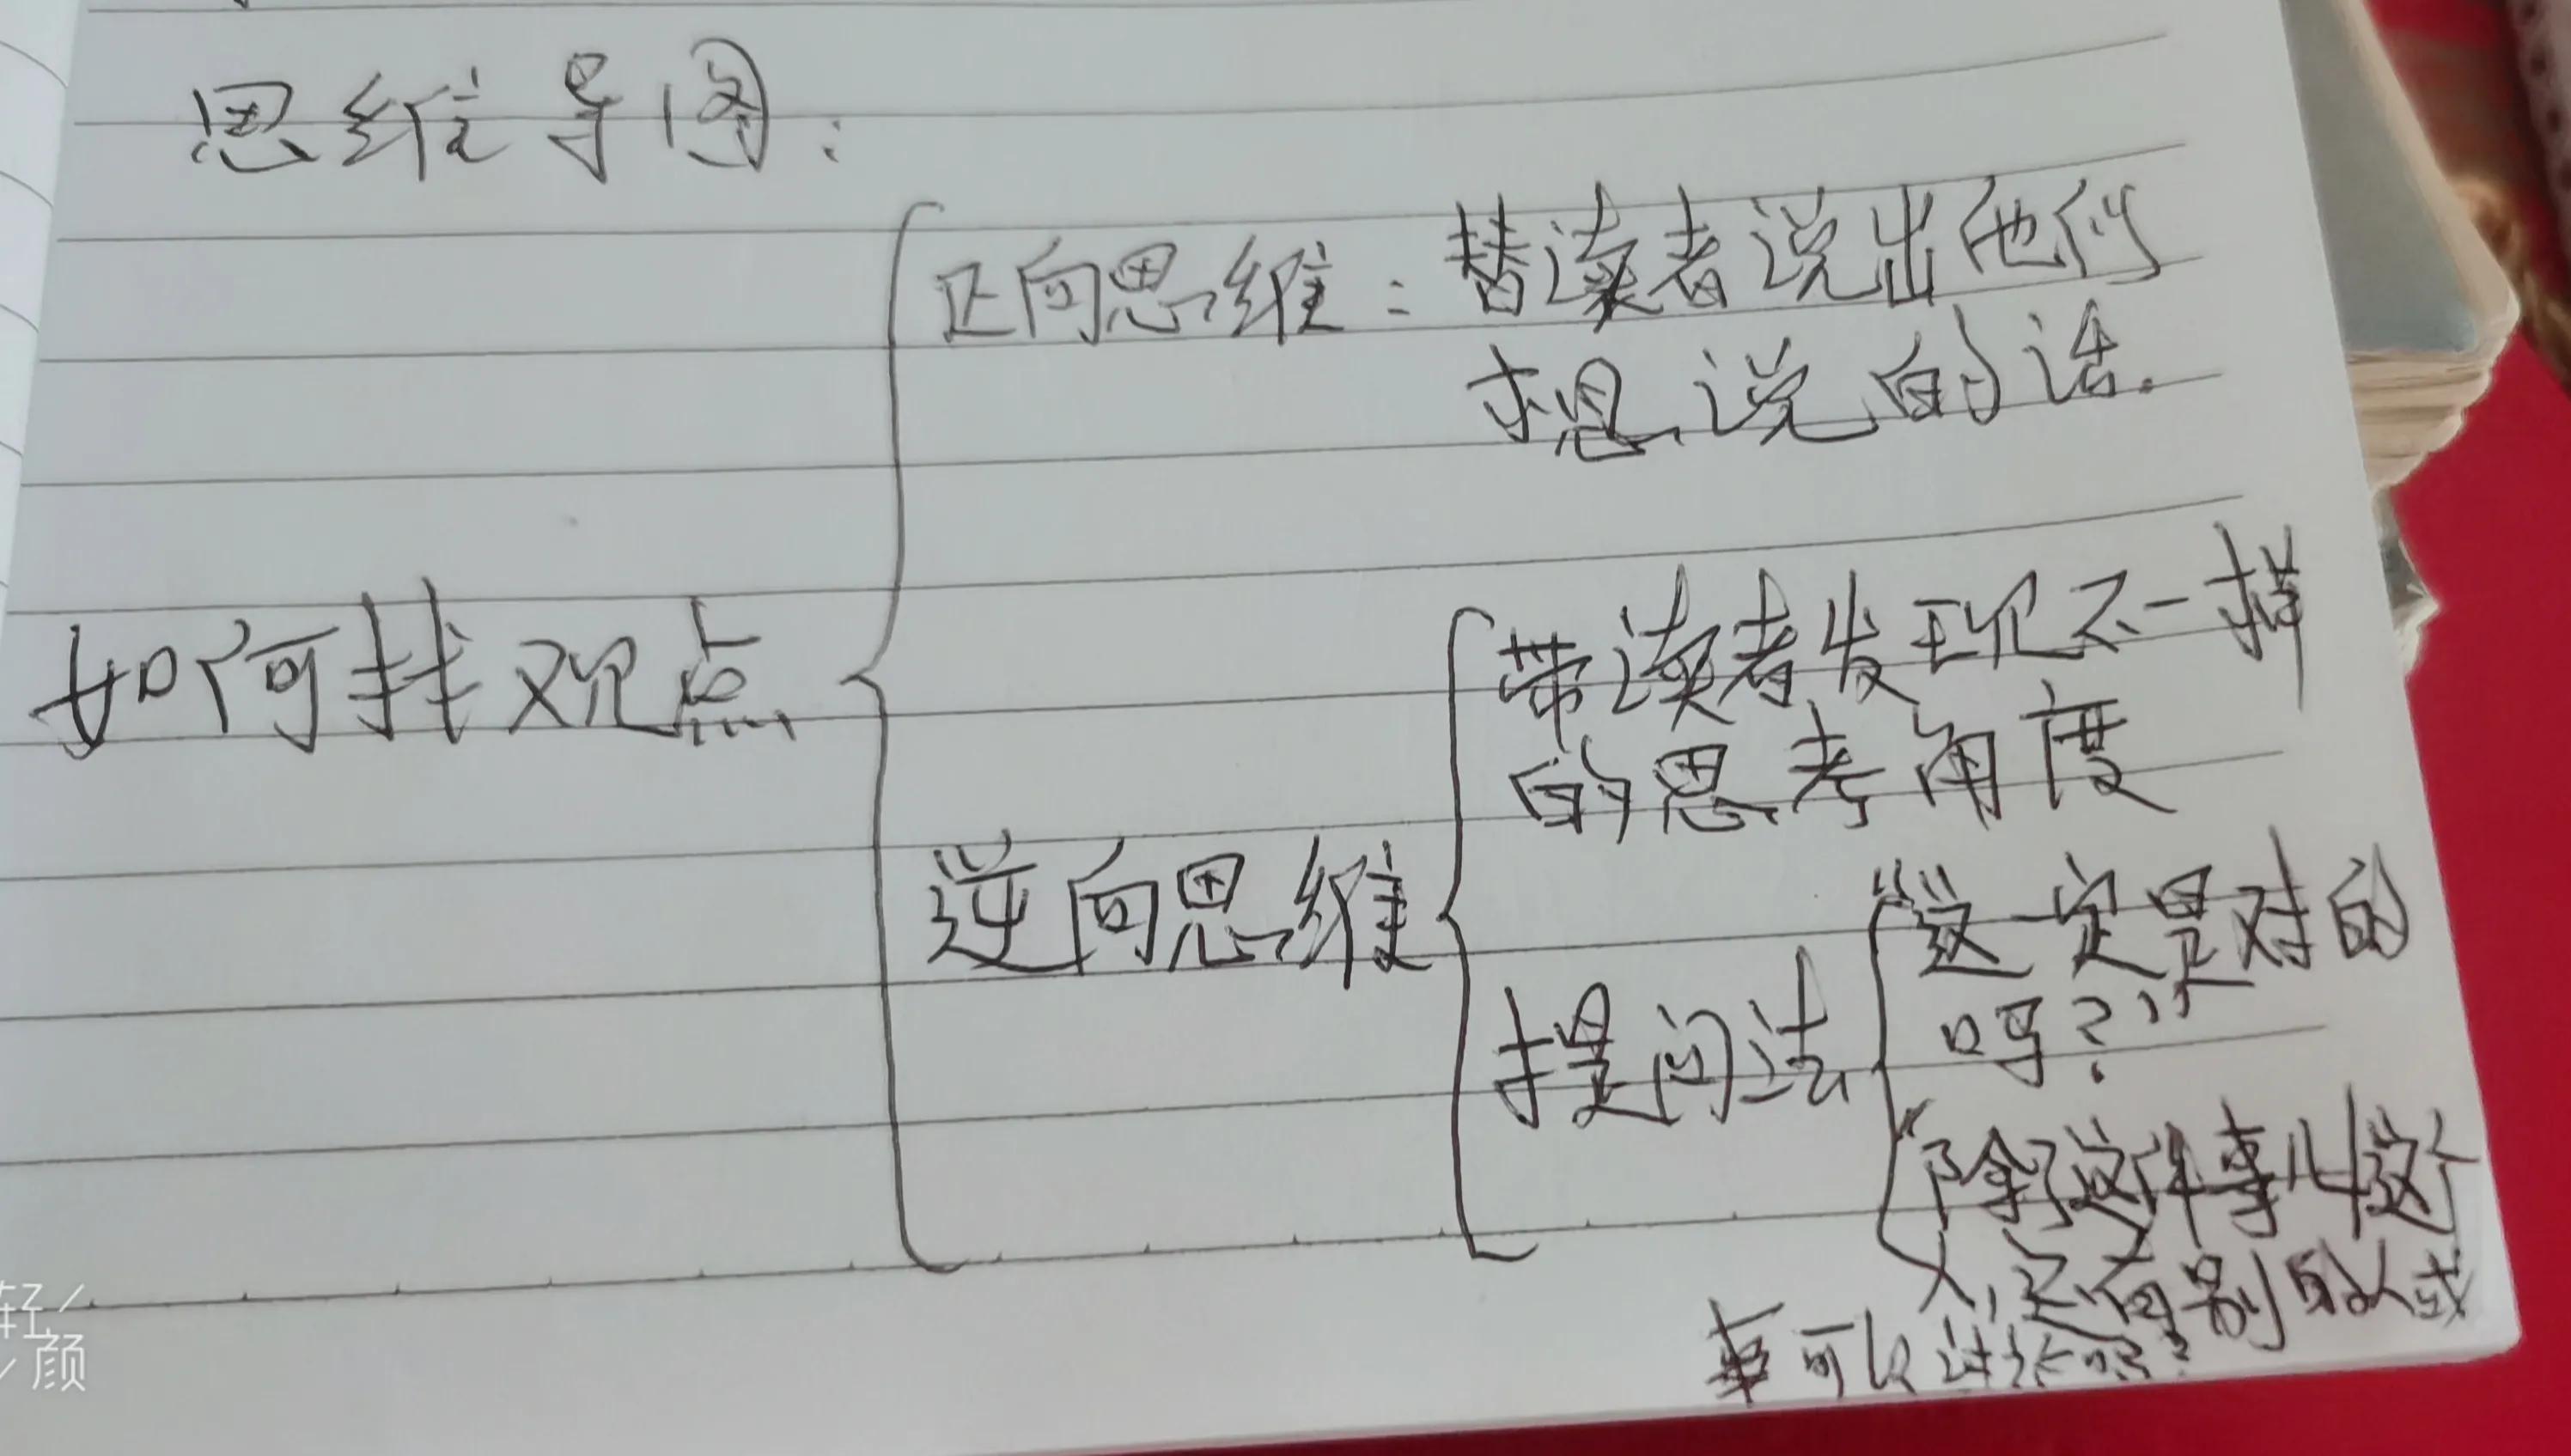 思维导图：
正向思维：替读者说出他们
想说的话.
如何找观点
带读者发现不一样
的思考角度
逆向思维
"这一定是对的
吗？"
提问法
"除了这件事儿/这个
人,还有别的人或
事可以讨论吗？
轻
颜